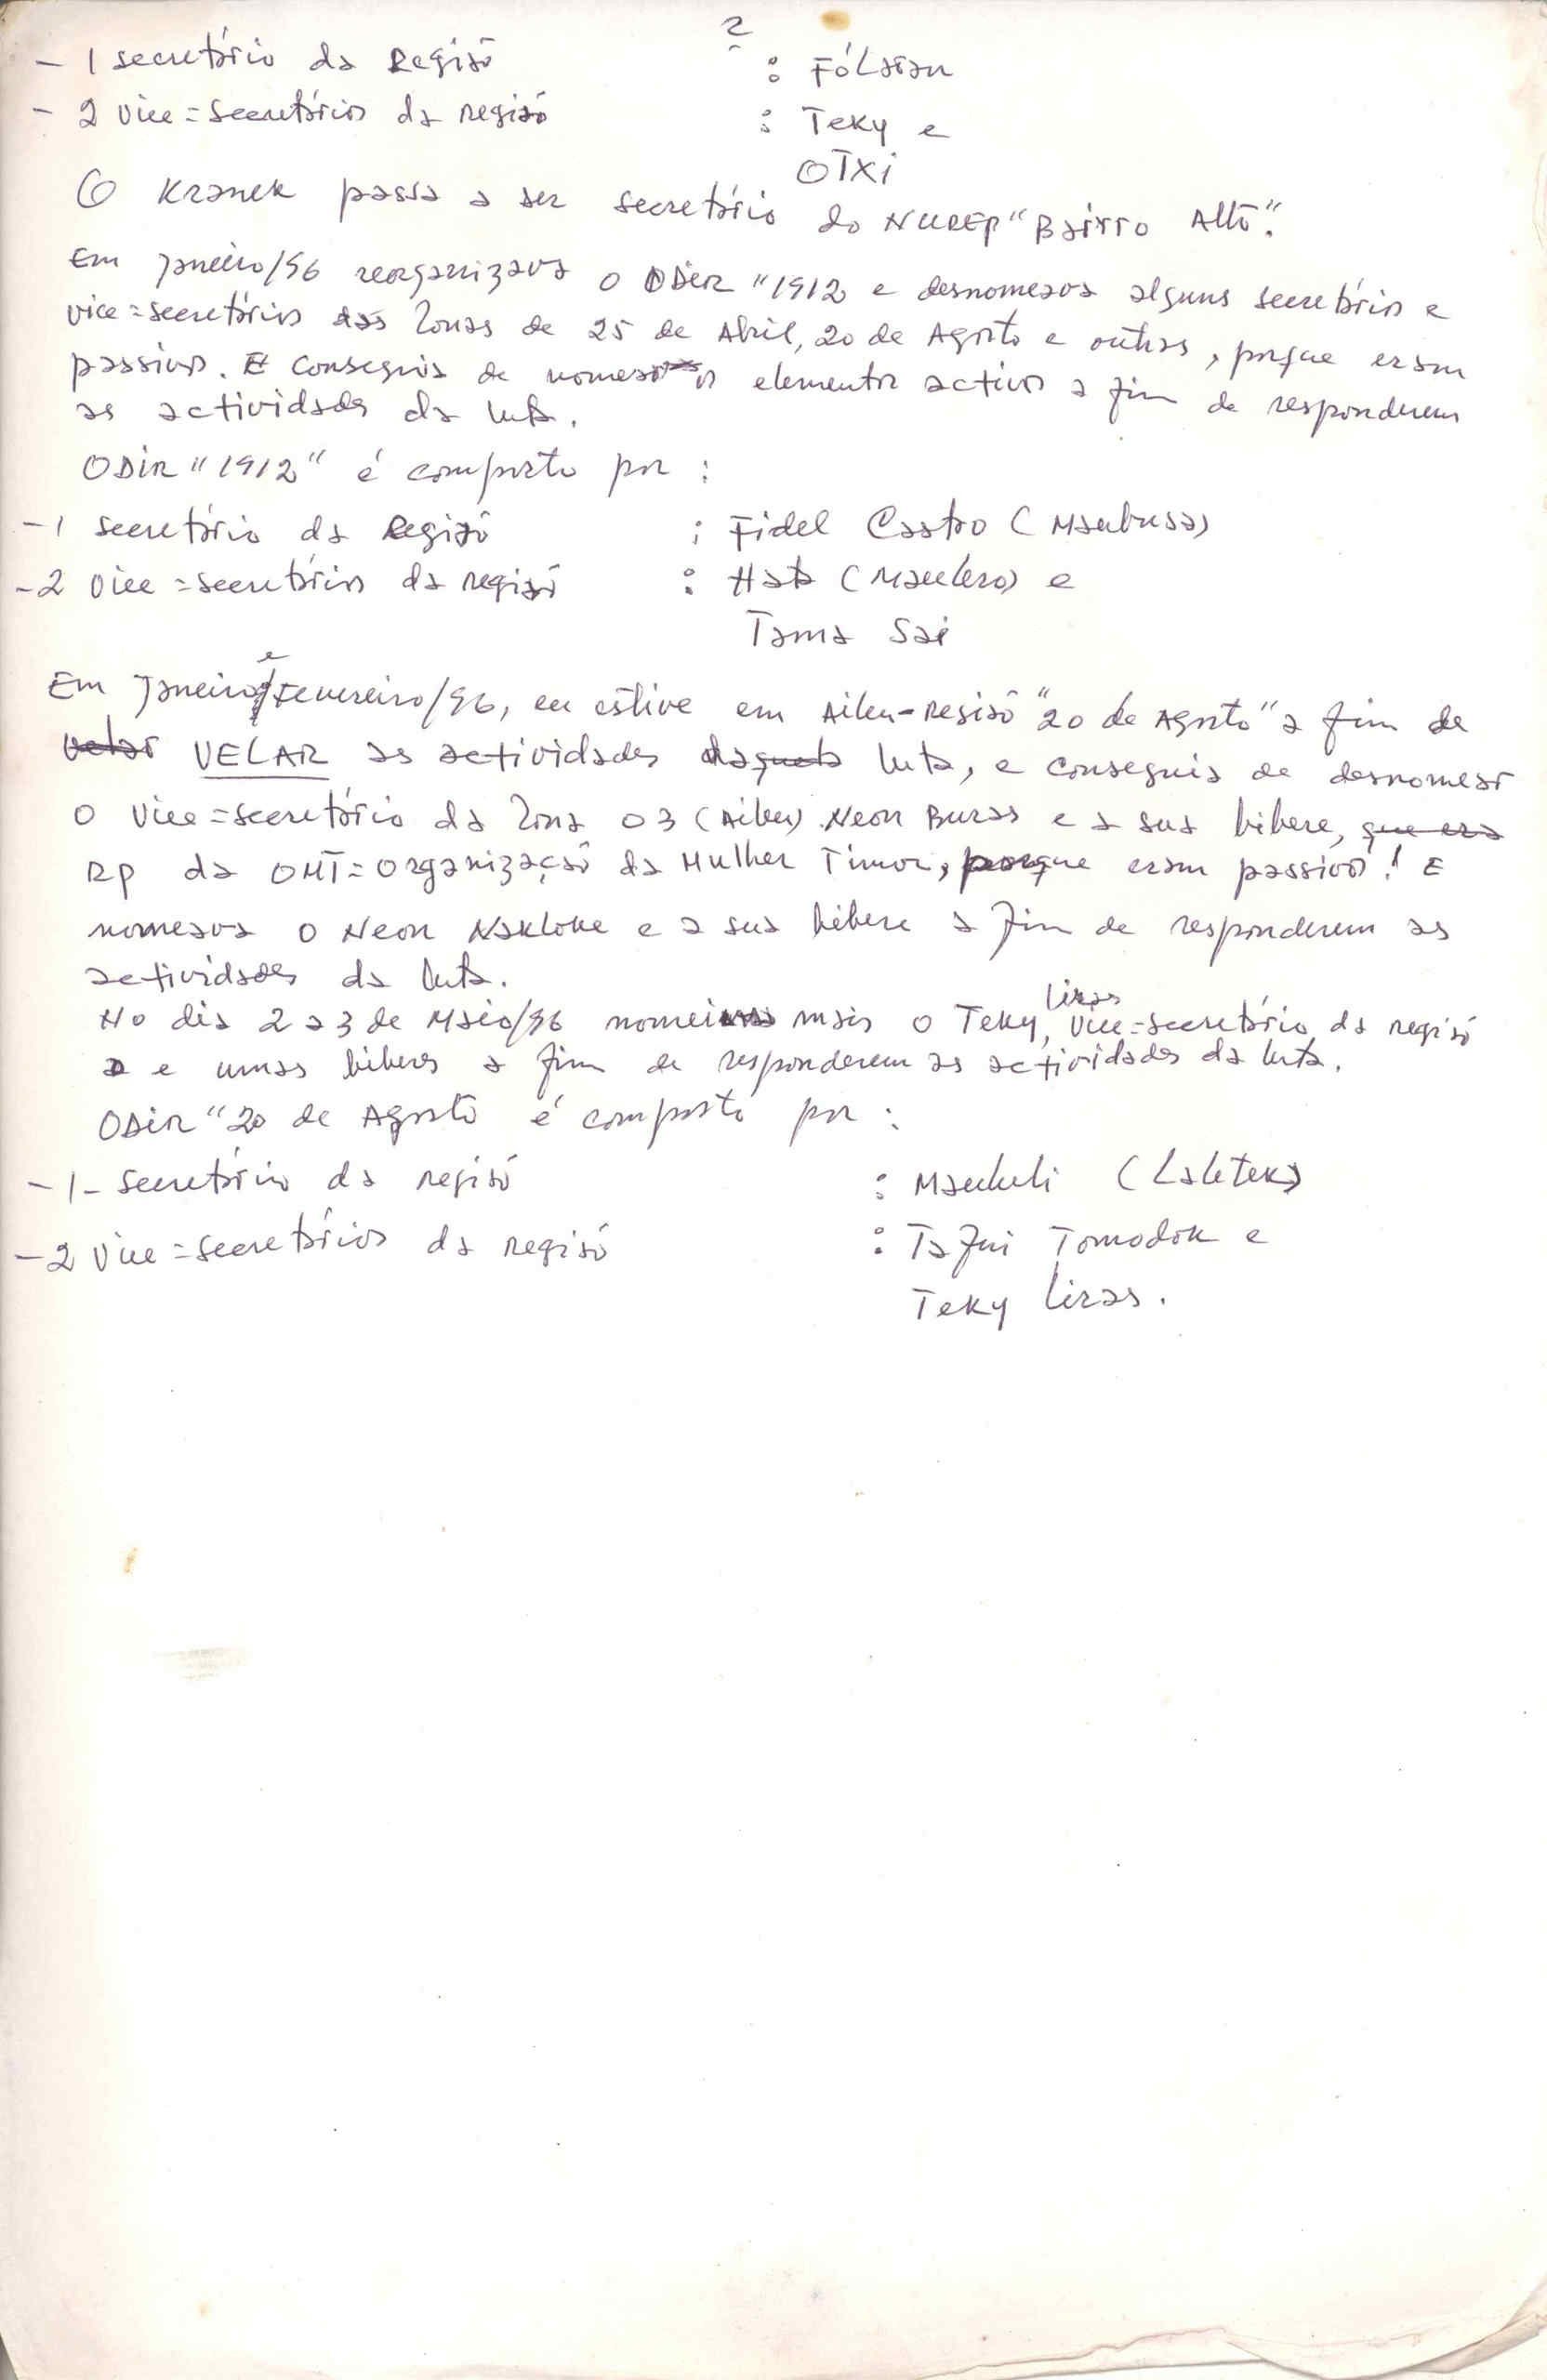 2
- 1 secretário da Região : Fólaran
- 2 Vice=secretários da região : Teky e
OTXi
O Kranek passa a ser secretário do NUREP "Bairro Alto".
Em Janeiro/96 reorganizava o ODIR "1912 e desnomeava alguns secretários e
vice=secretários das Zonas de 25 de Abril, 20 de Agosto e outras, porque eram
passivos. E conseguia de nomear os elementos activos a fim de responderem
as actividades da luta.
ODIR "1912" é composto por :
-1 secretário da Região : Fidel Castro (Maubusa)
-2 Vice=secretários da região : Hata (Maulera) e
Tama Sai
Em Janeiro e Fevereiro/96, eu estive em Aileu-Região "20 de Agosto" a fim de
velar VELAR as actividades daquela luta, e conseguia de desnomear
o Vice=secretário da Zona 03 (Aileu) Neon Buras e a sua bibere, que era
RP da OMT=Organização da Mulher Timor, porque eram passivos! E
nomeava o Neon Nakloke e a sua bibere a fim de responderem as
actividades da luta.
No dia 2 a 3 de Maio/96 nomei mais o Teky Liras, Vice=secretário da região
e umas biberes a fim de responderem as actividades da luta.
ODIR "20 de Agosto é composto por :
-1- secretário da região : Maukuli (Laletek)
-2 Vice=secretários da região : Tafui Tomodok e
Teky Liras.